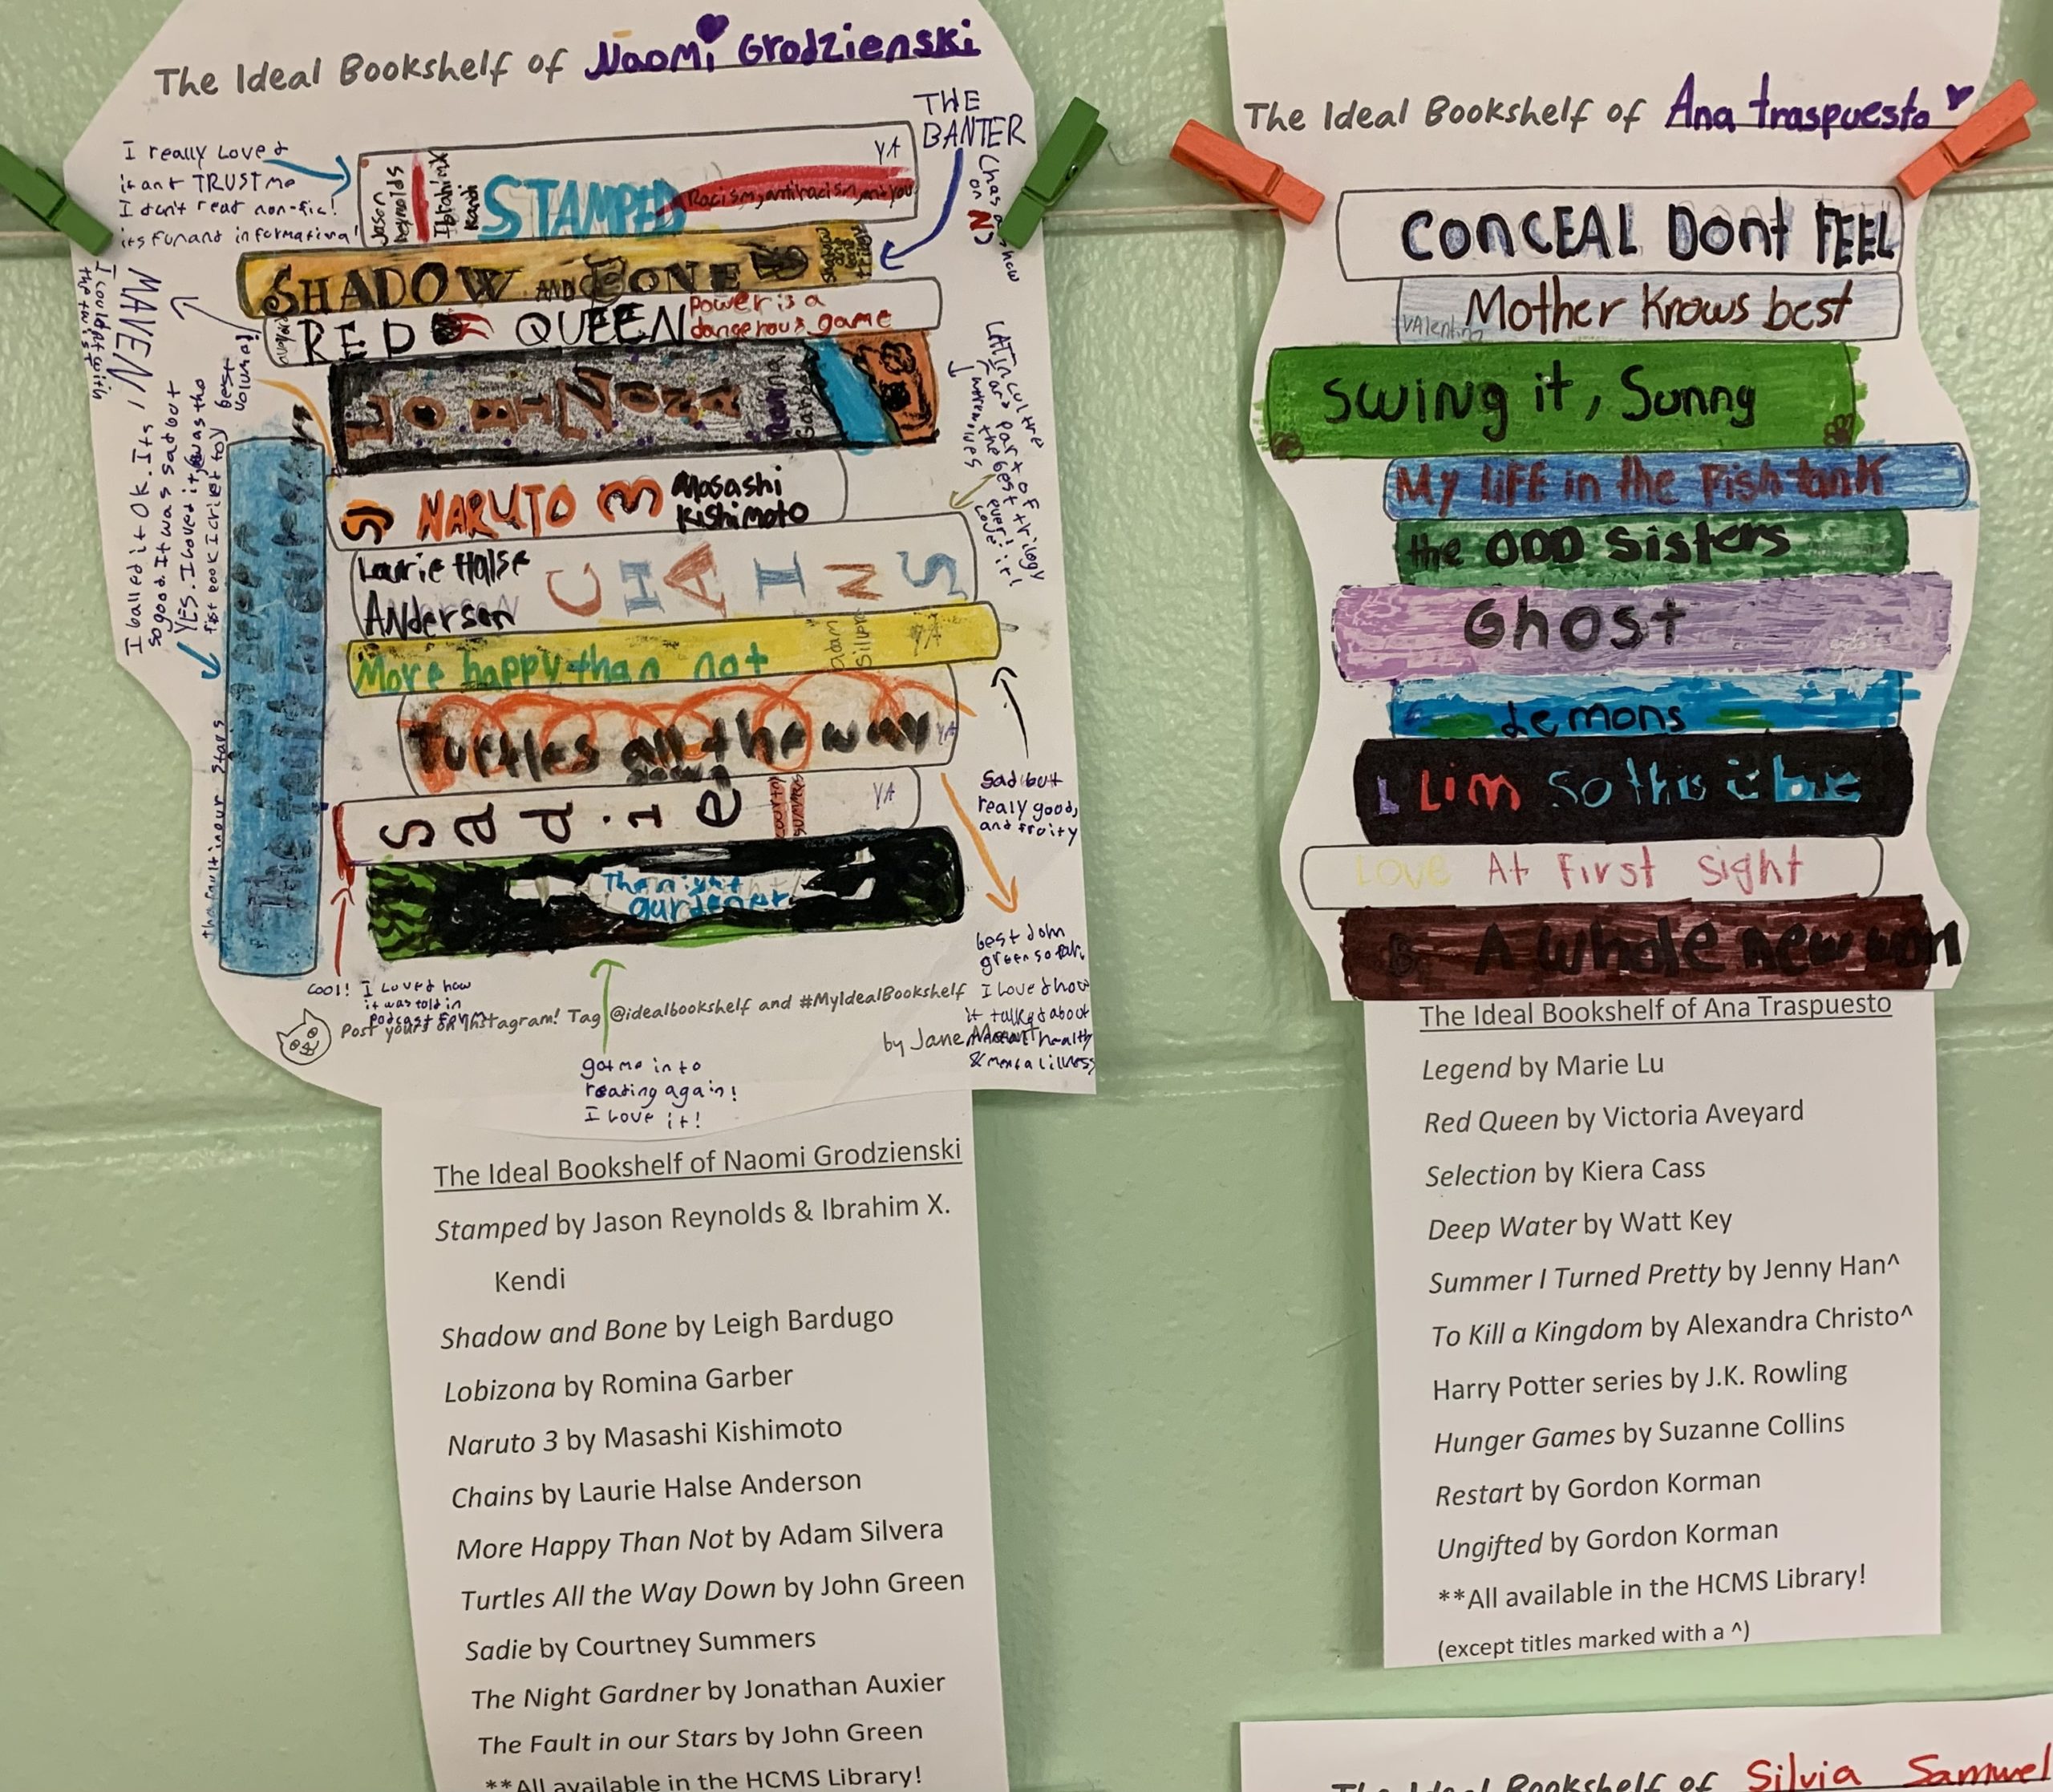 The Ideal Bookshelf of Naomi Grodzienski
I really loved
it and TRUST me
I don't read non-fic!
its fun and informational!
THE
BANTER
Jason
Reynolds
Ibrahim X
Kendi
STAMPED
Racism, antiracism, and you
YA
SHADOW AND BONE
RED QUEEN
power is a
dangerous game
MAVEN!
I could
the twists
I balled it OK. Its
so good. It was sad but
YES. I loved it, was the
fist book I cried to
best
volume!
LOBIZONA
Romina
Garber
NARUTO 3
Masashi
Kishimoto
Laurie Halse
Anderson
CHAINS
More happy than not
Adam
Silvera
Turtles all the way
down
YA
Sadie
courtney
summers
YA
The night
gardener
The fault in our stars
the fault in our stars
Latin culture
part of
trilogy
the best
ever!
Love it!
Sad but
realy good,
and fruity
best John
green so far.
I loved how
it talked about
health
& mental illness
cool! I Loved how
it was told in
podcast form
Post yours on Instagram! Tag @idealbookshelf and #MyIdealBookshelf
by Jane Mount
got me into
reading again!
I Love it!
The Ideal Bookshelf of Naomi Grodzienski
Stamped by Jason Reynolds & Ibrahim X.
Kendi
Shadow and Bone by Leigh Bardugo
Lobizona by Romina Garber
Naruto 3 by Masashi Kishimoto
Chains by Laurie Halse Anderson
More Happy Than Not by Adam Silvera
Turtles All the Way Down by John Green
Sadie by Courtney Summers
The Night Gardner by Jonathan Auxier
The Fault in our Stars by John Green
**All available in the HCMS Library!
The Ideal Bookshelf of Ana traspuesto
CONCEAL Dont FEEL
Mother Knows best
VAlentino
Swing it, Sunny
My life in the Fish tank
the ODD Sisters
Ghost
Lemons
L Lim So this is love
Love At First Sight
A whole new
The Ideal Bookshelf of Ana Traspuesto
Legend by Marie Lu
Red Queen by Victoria Aveyard
Selection by Kiera Cass
Deep Water by Watt Key
Summer I Turned Pretty by Jenny Han^
To Kill a Kingdom by Alexandra Christo^
Harry Potter series by J.K. Rowling
Hunger Games by Suzanne Collins
Restart by Gordon Korman
Ungifted by Gordon Korman
**All available in the HCMS Library!
(except titles marked with a ^)
The Ideal Bookshelf of Silvia Samuel